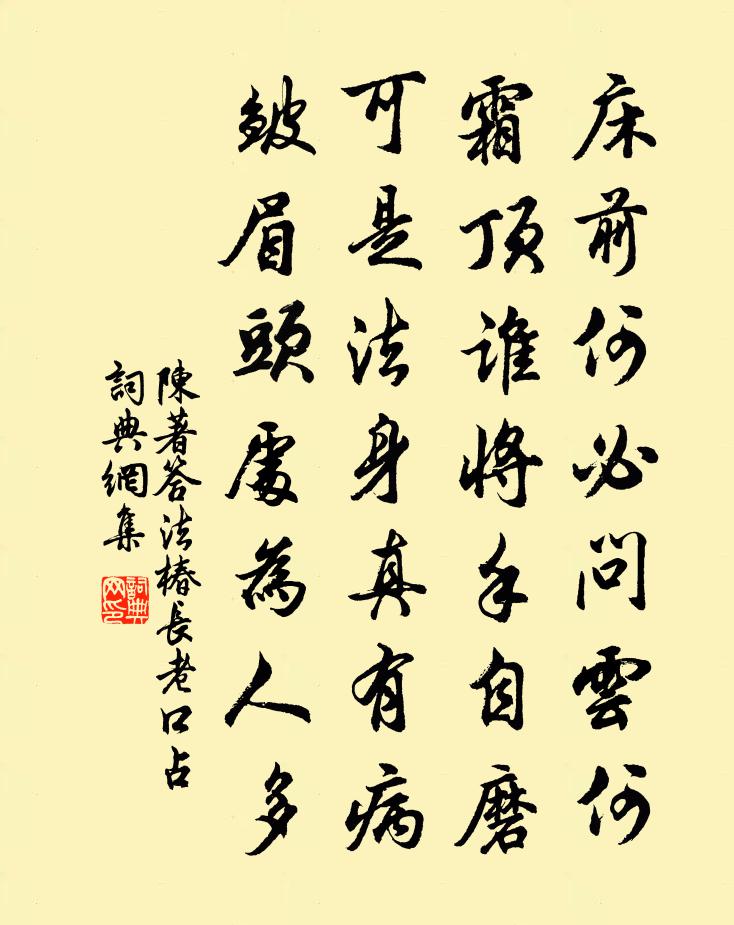 床前何必問雲何
霜頂誰將手自磨
可是法身真有病
皺眉頭處為人多
陳著答法椿長老口占
詞典網集
詞典網印